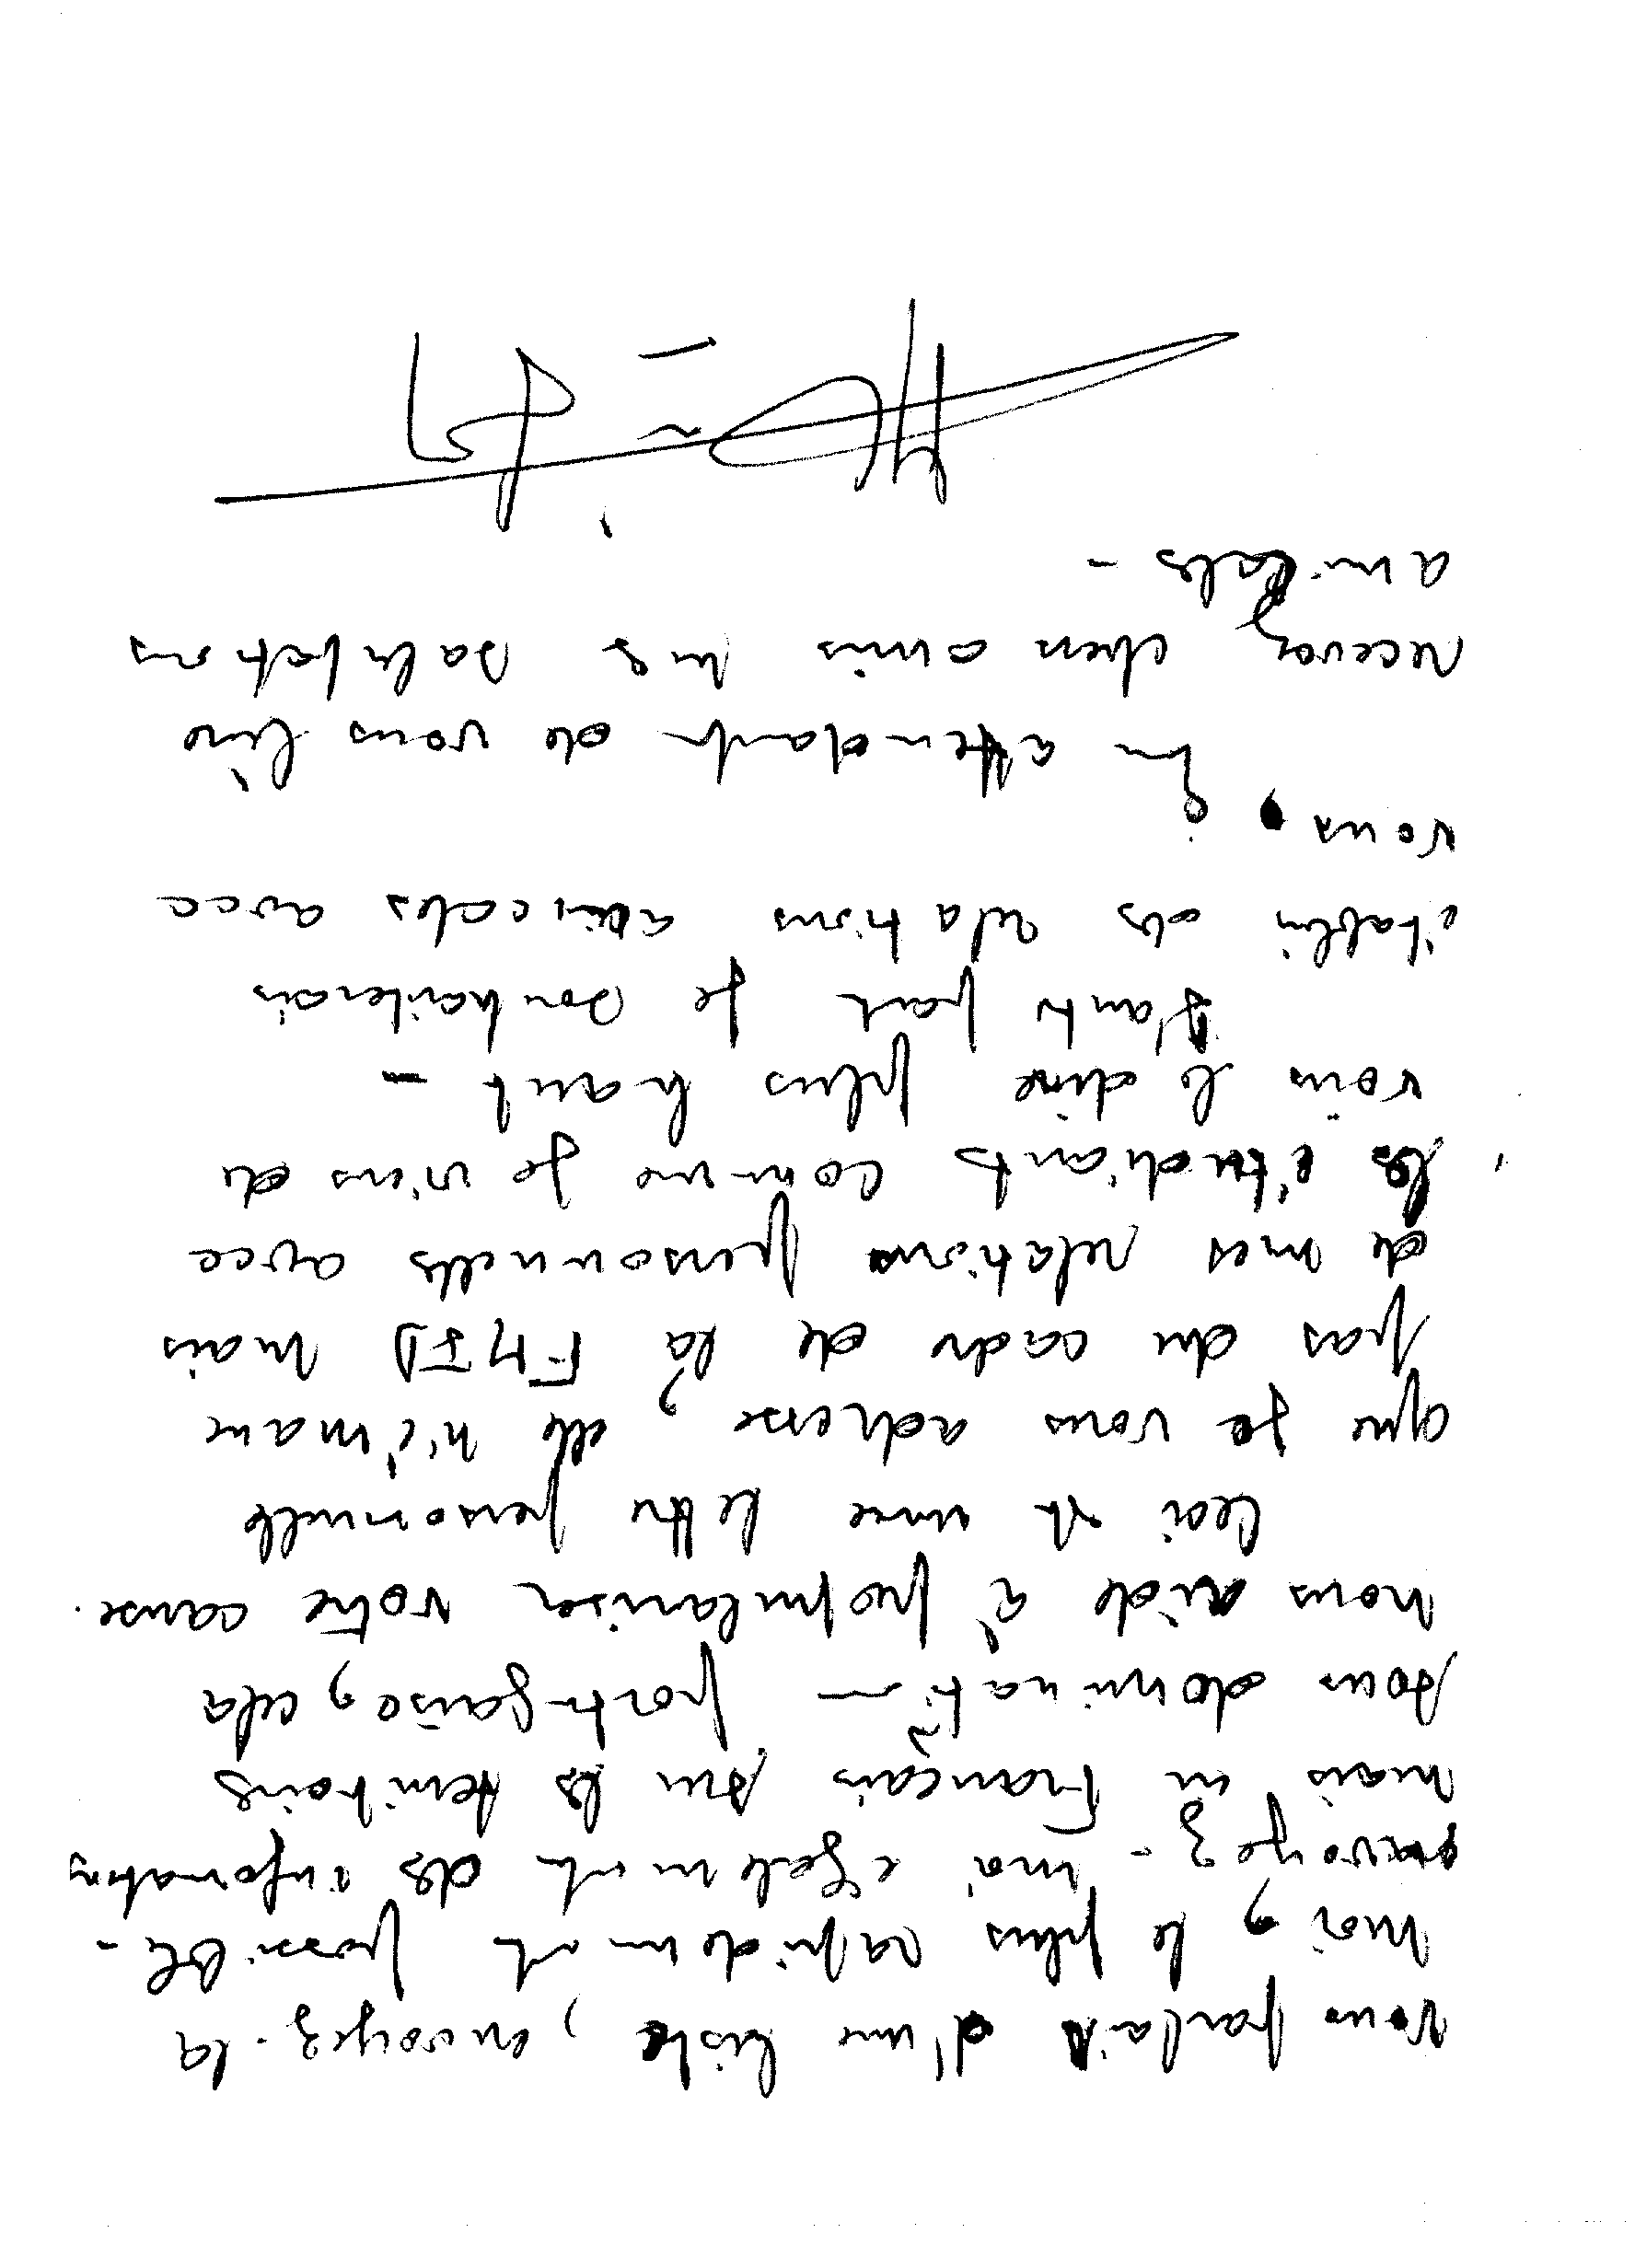 vous parlais d'une liste, envoyez-la
moi, le plus rapidement possible -
envoyez - moi également des informations
mais en Français sur les territoires
sous domination portugaise, cela
nous aide à populariser votre cause.
Ceci est une lettre personnelle
que je vous adresse, elle n'émane
pas du cadre de la FMJD mais
de mes relations personnelles avec
les étudiants comme je viens de
vous le dire plus haut -
D'autre part je souhaiterais
établir des relations amicales avec
vous,
En attendant de vous lire
recevez chers amis mes salutations
amicales -